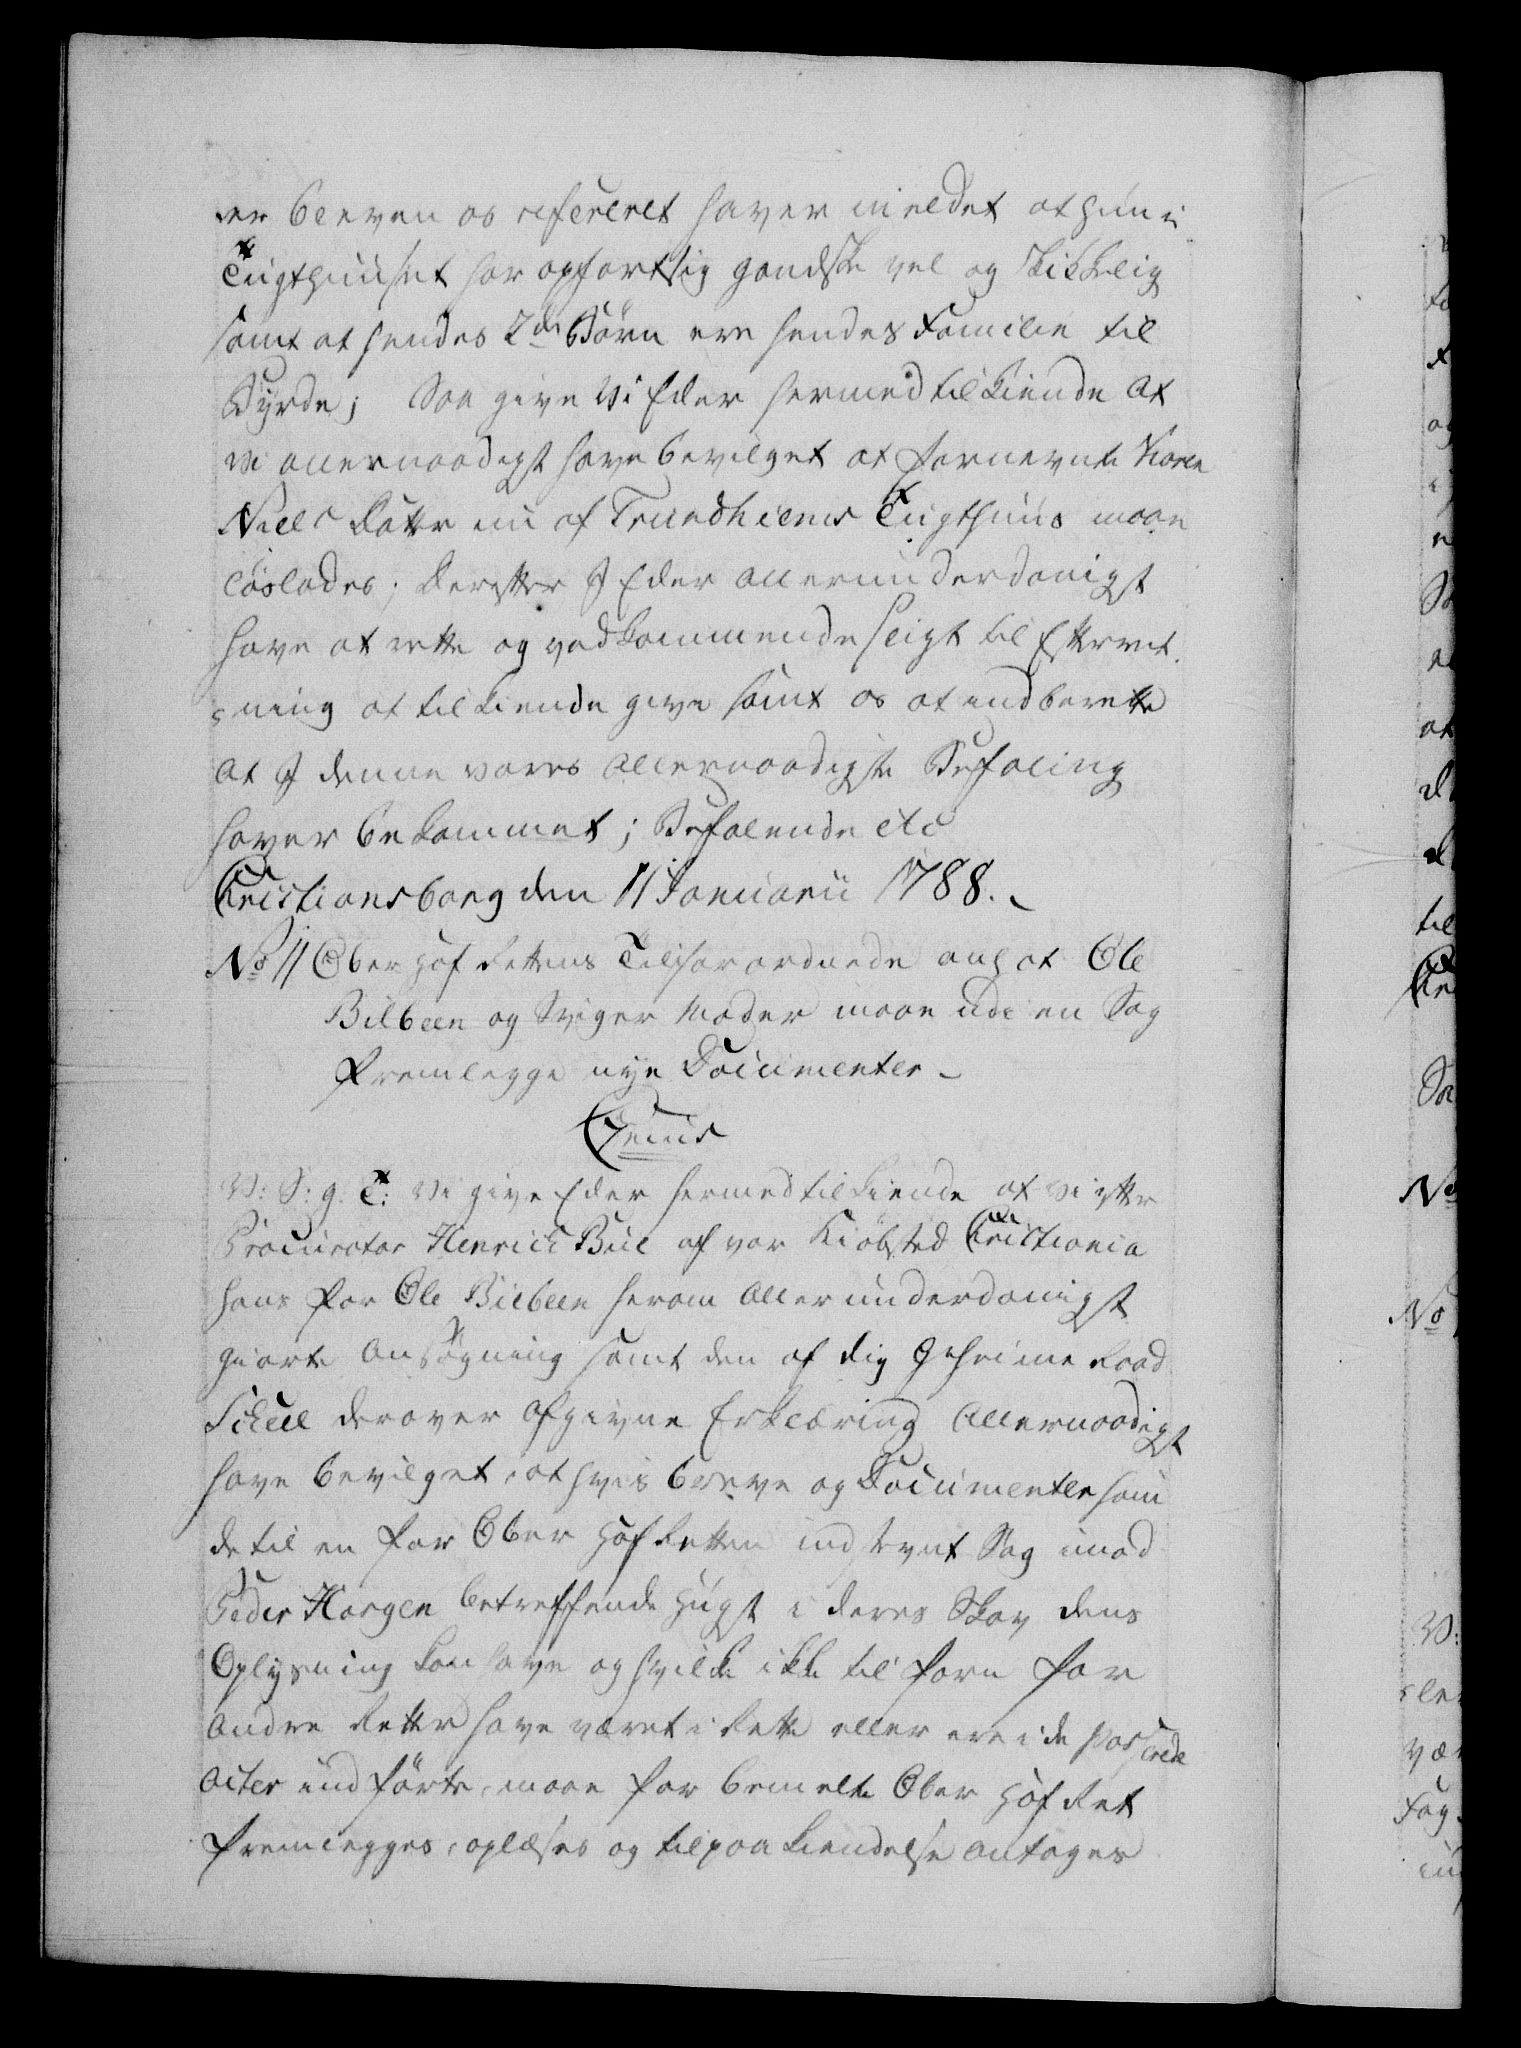 er bleven os refereret haver meldet at hun i
Tugthuuset har opført sig gandske vel og skikkelig
samt at hendes 2de Børn ere hendes Familie til
Byrde; Saa give Vi Eder hermed tilkiende At
vi allernaadigst have bevilget at fornevnte Karen
Niels Datter nu af Trundhiems Tugthuus maae
løslades; derefter I Eder allerunderdanigst
have at rette og vedkommende sligt til Efterret-
ning at tilkiende give samt os at indberette
At I denne vores allernaadigste Befaling
haver bekommet; Befalende etc
Christiansborg den 11 Januarii 1788.
No 11 Ober Hof Rettens Tilforordnede ang at Ole
Bilbeen og Sviger Moder maae udi en Sag
fremlegge nye Documenter
C7mus
V: S: g. T: Vi give Eder hermed tilkiende at vi efter
Procurator Henrich Bull af vor Kiøbsted Christiania
hans for Ole Bilbeen herom allerunderdanigst
giorte Ansøgning samt den af dig Geheime Raad
Scheel derover afgivne Erklæring Allernaadigst
have bevilget, at hvis breve og Documenter som
de til en for Ober Hof Retten indstevnt Sag imod
Peder Horgen betreffende Hugst i deres Skov dens
Oplysning kan have og hvilke ikke tilforn for
Andre Retter have været i Rette eller ere i de passerede
Acter indførte, maae for bemelte Ober Hof Ret
fremlegges, oplæses og til paakiendelse antages